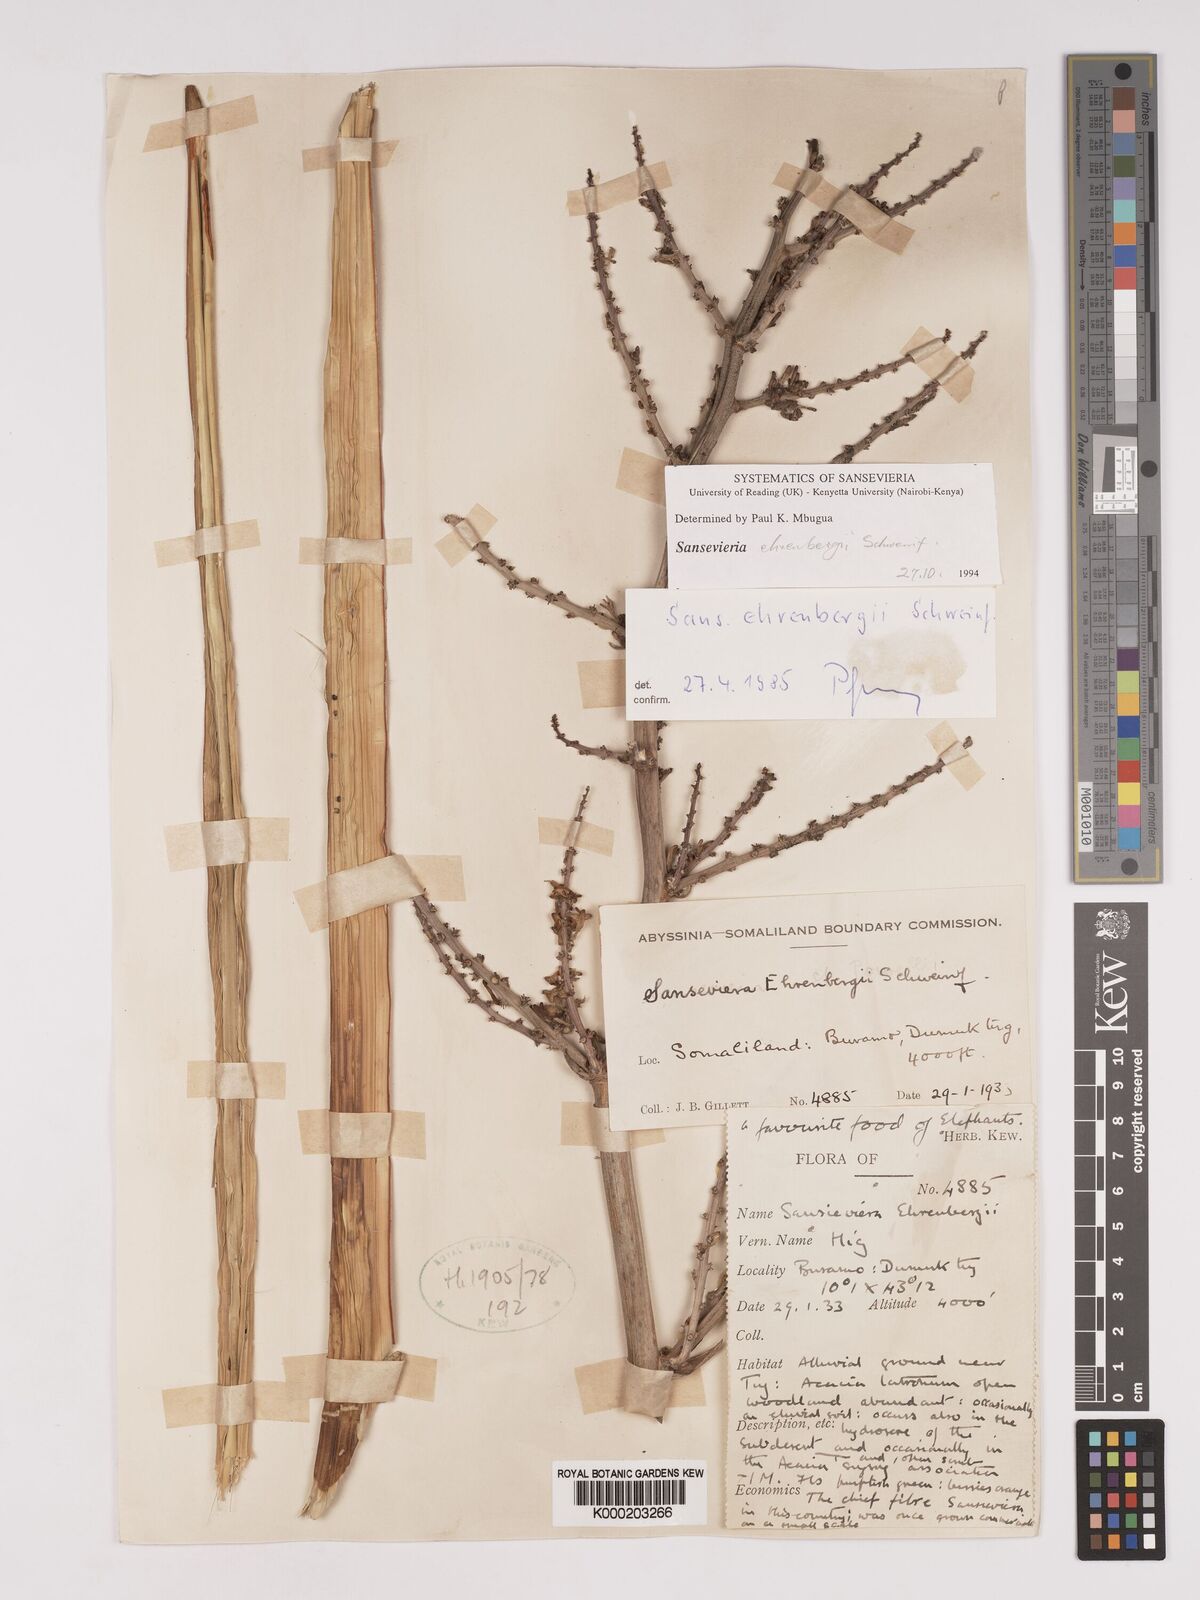 SYSTEMATICS OF SANSEVIERIA
University of Reading (UK) - Kenyetta University (Nairobi-Kenya)
Determined by Paul K. Mbugua
Sansevieria ehrenbergii Schweinf.
27.10. 1994
Sans. ehrenbergii Schweinf.
det.
confirm. 27.4.1985
ABYSSINIA—SOMALILAND BOUNDARY COMMISSION.
Sanseviera Ehrenbergii Schweinf.
Loc. Somaliland: Buramo, Dumuk tug,
4000 ft.
Coll.: J. B. GILLETT No. 4885 Date 29-1-1933
a favourite food of Elephants.
HERB. KEW.
FLORA OF
No. 4885
Name Sansieviera Ehrenbergii
Vern. Name Hig
Locality Buramo: Dumuk tug
10°1 x 43°12
Date 29.1.33 Altitude 4000'
Coll.
Habitat Alluvial ground near
Tug: Acacia open
woodland abundant: occasionally
on eluvial soil: occurs also in the
Description, etc: hydrosere of the
subdesert and occasionally in
the Acacia and open scrub
association
-1 M. Fls purplish green: berries orange:
Economics The chief fibre Sanseviera
in this country; was once grown commercially
on a small scale
ROYAL BOTANIC GARDENS
H.1905/78
192
KEW
ROYAL BOTANIC GARDENS KEW
K000203266
inches
centimeters
Density
Don Williams
M001010
Royal Botanic Gardens
Kew
copyright reserved
cm
0 1 2 3 4 5 6 7 8 9 10